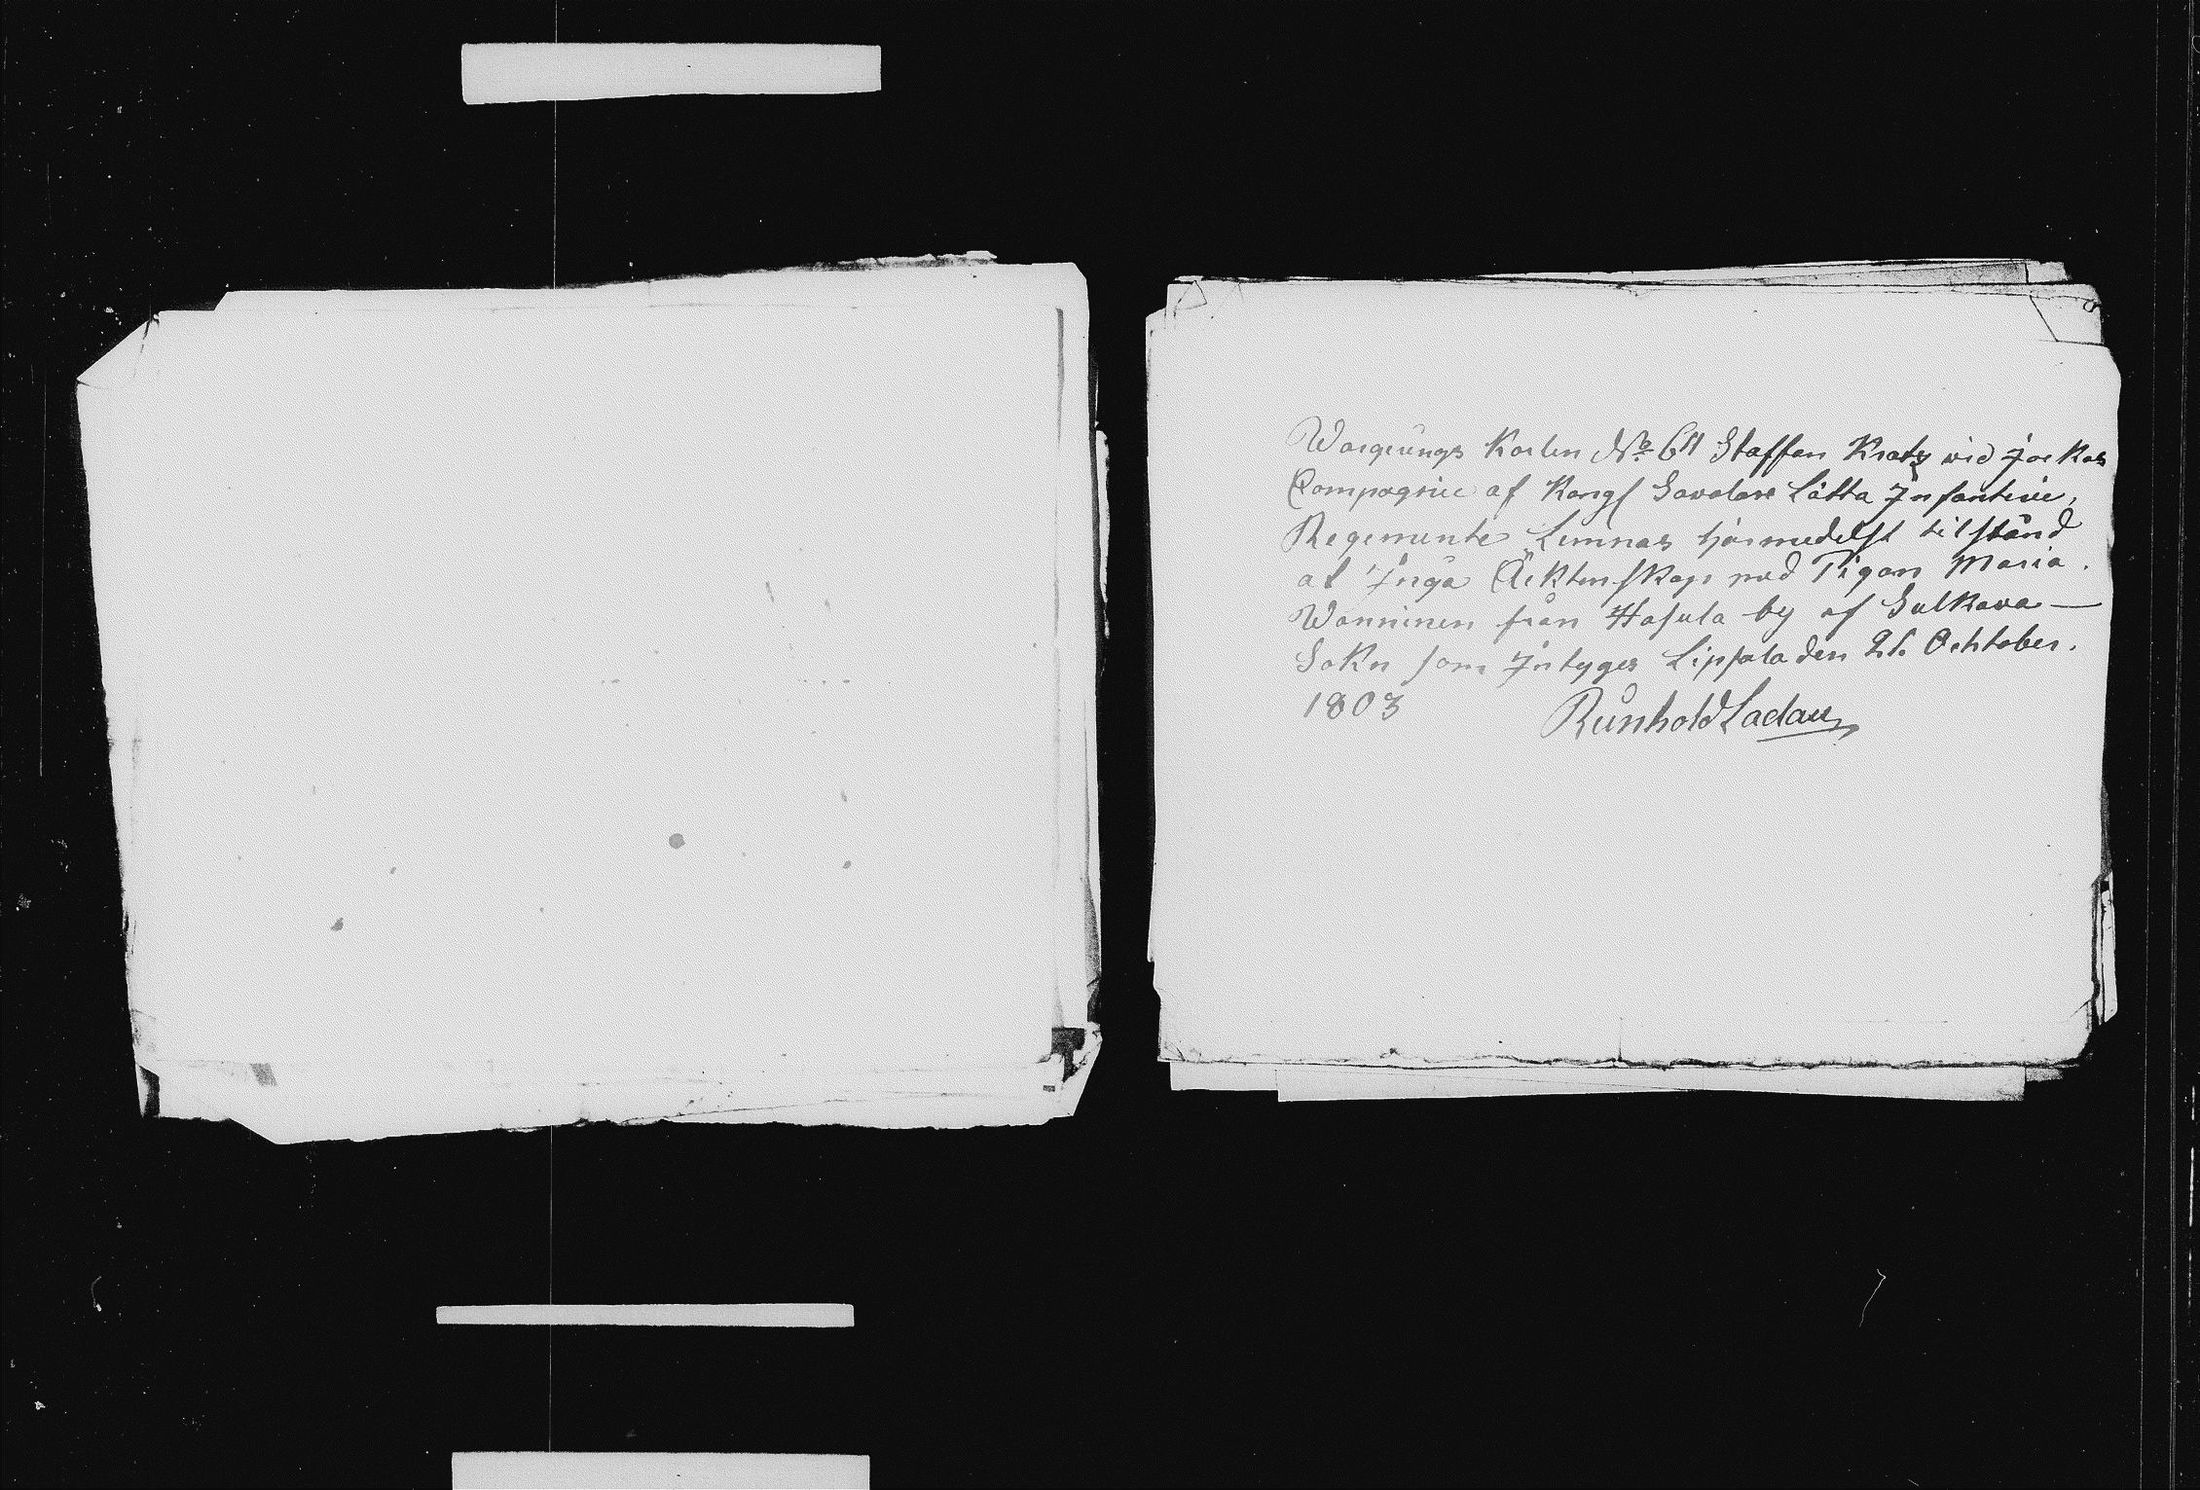 Wargerings Karlen No 61 Staffan Kratz wid Jockas
Compagnie af Kongl Savolax Lätta Infanterie,
Regemente Lemnas härmedelst tilstånd
at Ingå Äcktenskap med Pigan Maria.
Wanninen från Hasula by af Sulkava —
Sokn som Intyges Lipsala den 21. Ochtober.
1803 Reinhold Ladau